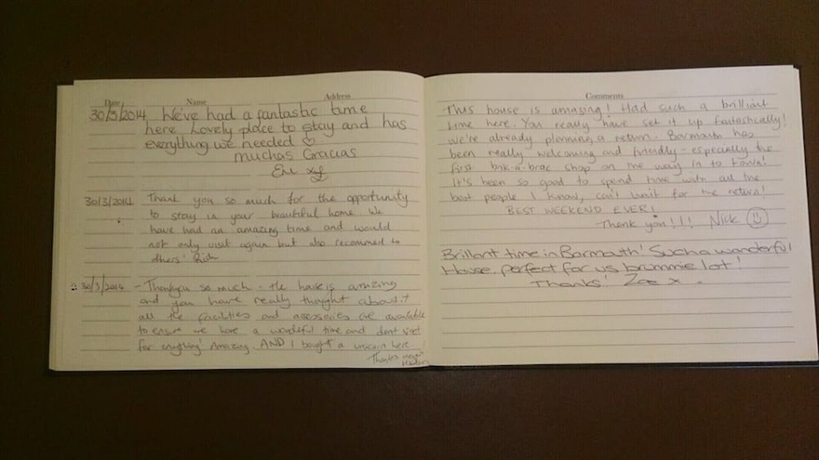 Date Name Address
30/3/2014 We've had a fantastic time
here. Lovely place to stay and has
everything we needed
Muchas Gracias
30/3/2014 Thank you so much for the opportunity
to stay in your beautiful home. We
have had an amazing time and would
not only visit again but also recommend to
others!
30/3/2014 - Thankyou so much - the house is amazing
and you have really thought about it
all the facilities and accessories are available
to ensure we have a wonderful time and dont want
for anything! Amazing. AND I bought a unicorn here
Thanks
Comments
This house is amazing! Had such a brilliant
time here. You really have set it up fantastically!
We're already planning a return. Barmouth has
been really welcoming and friendly - especially the
first brik-a-brac shop on the way in to town!
It's been so good to spend time with all the
best people I know, can't wait for the return!
BEST WEEKEND EVER!
Thank you!!! Nick
Brillant time in Barmouth! Such a wonderful
House, perfect for us brummie lot!
Thanks! Zoe x